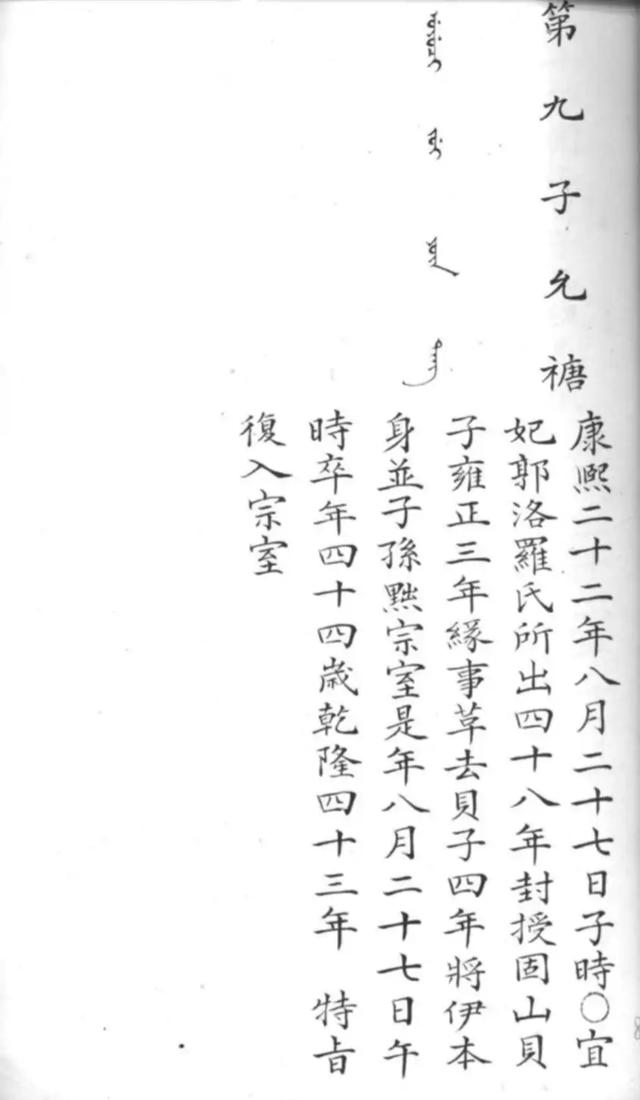 第九子允禟
康熙二十二年八月二十七日子時○宜
妃郭洛羅氏所出四十八年封授固山貝
子雍正三年緣事革去貝子四年將伊本
身並子孫黜宗室是年八月二十七日午
時卒年四十四歲乾隆四十三年 特旨
復入宗室